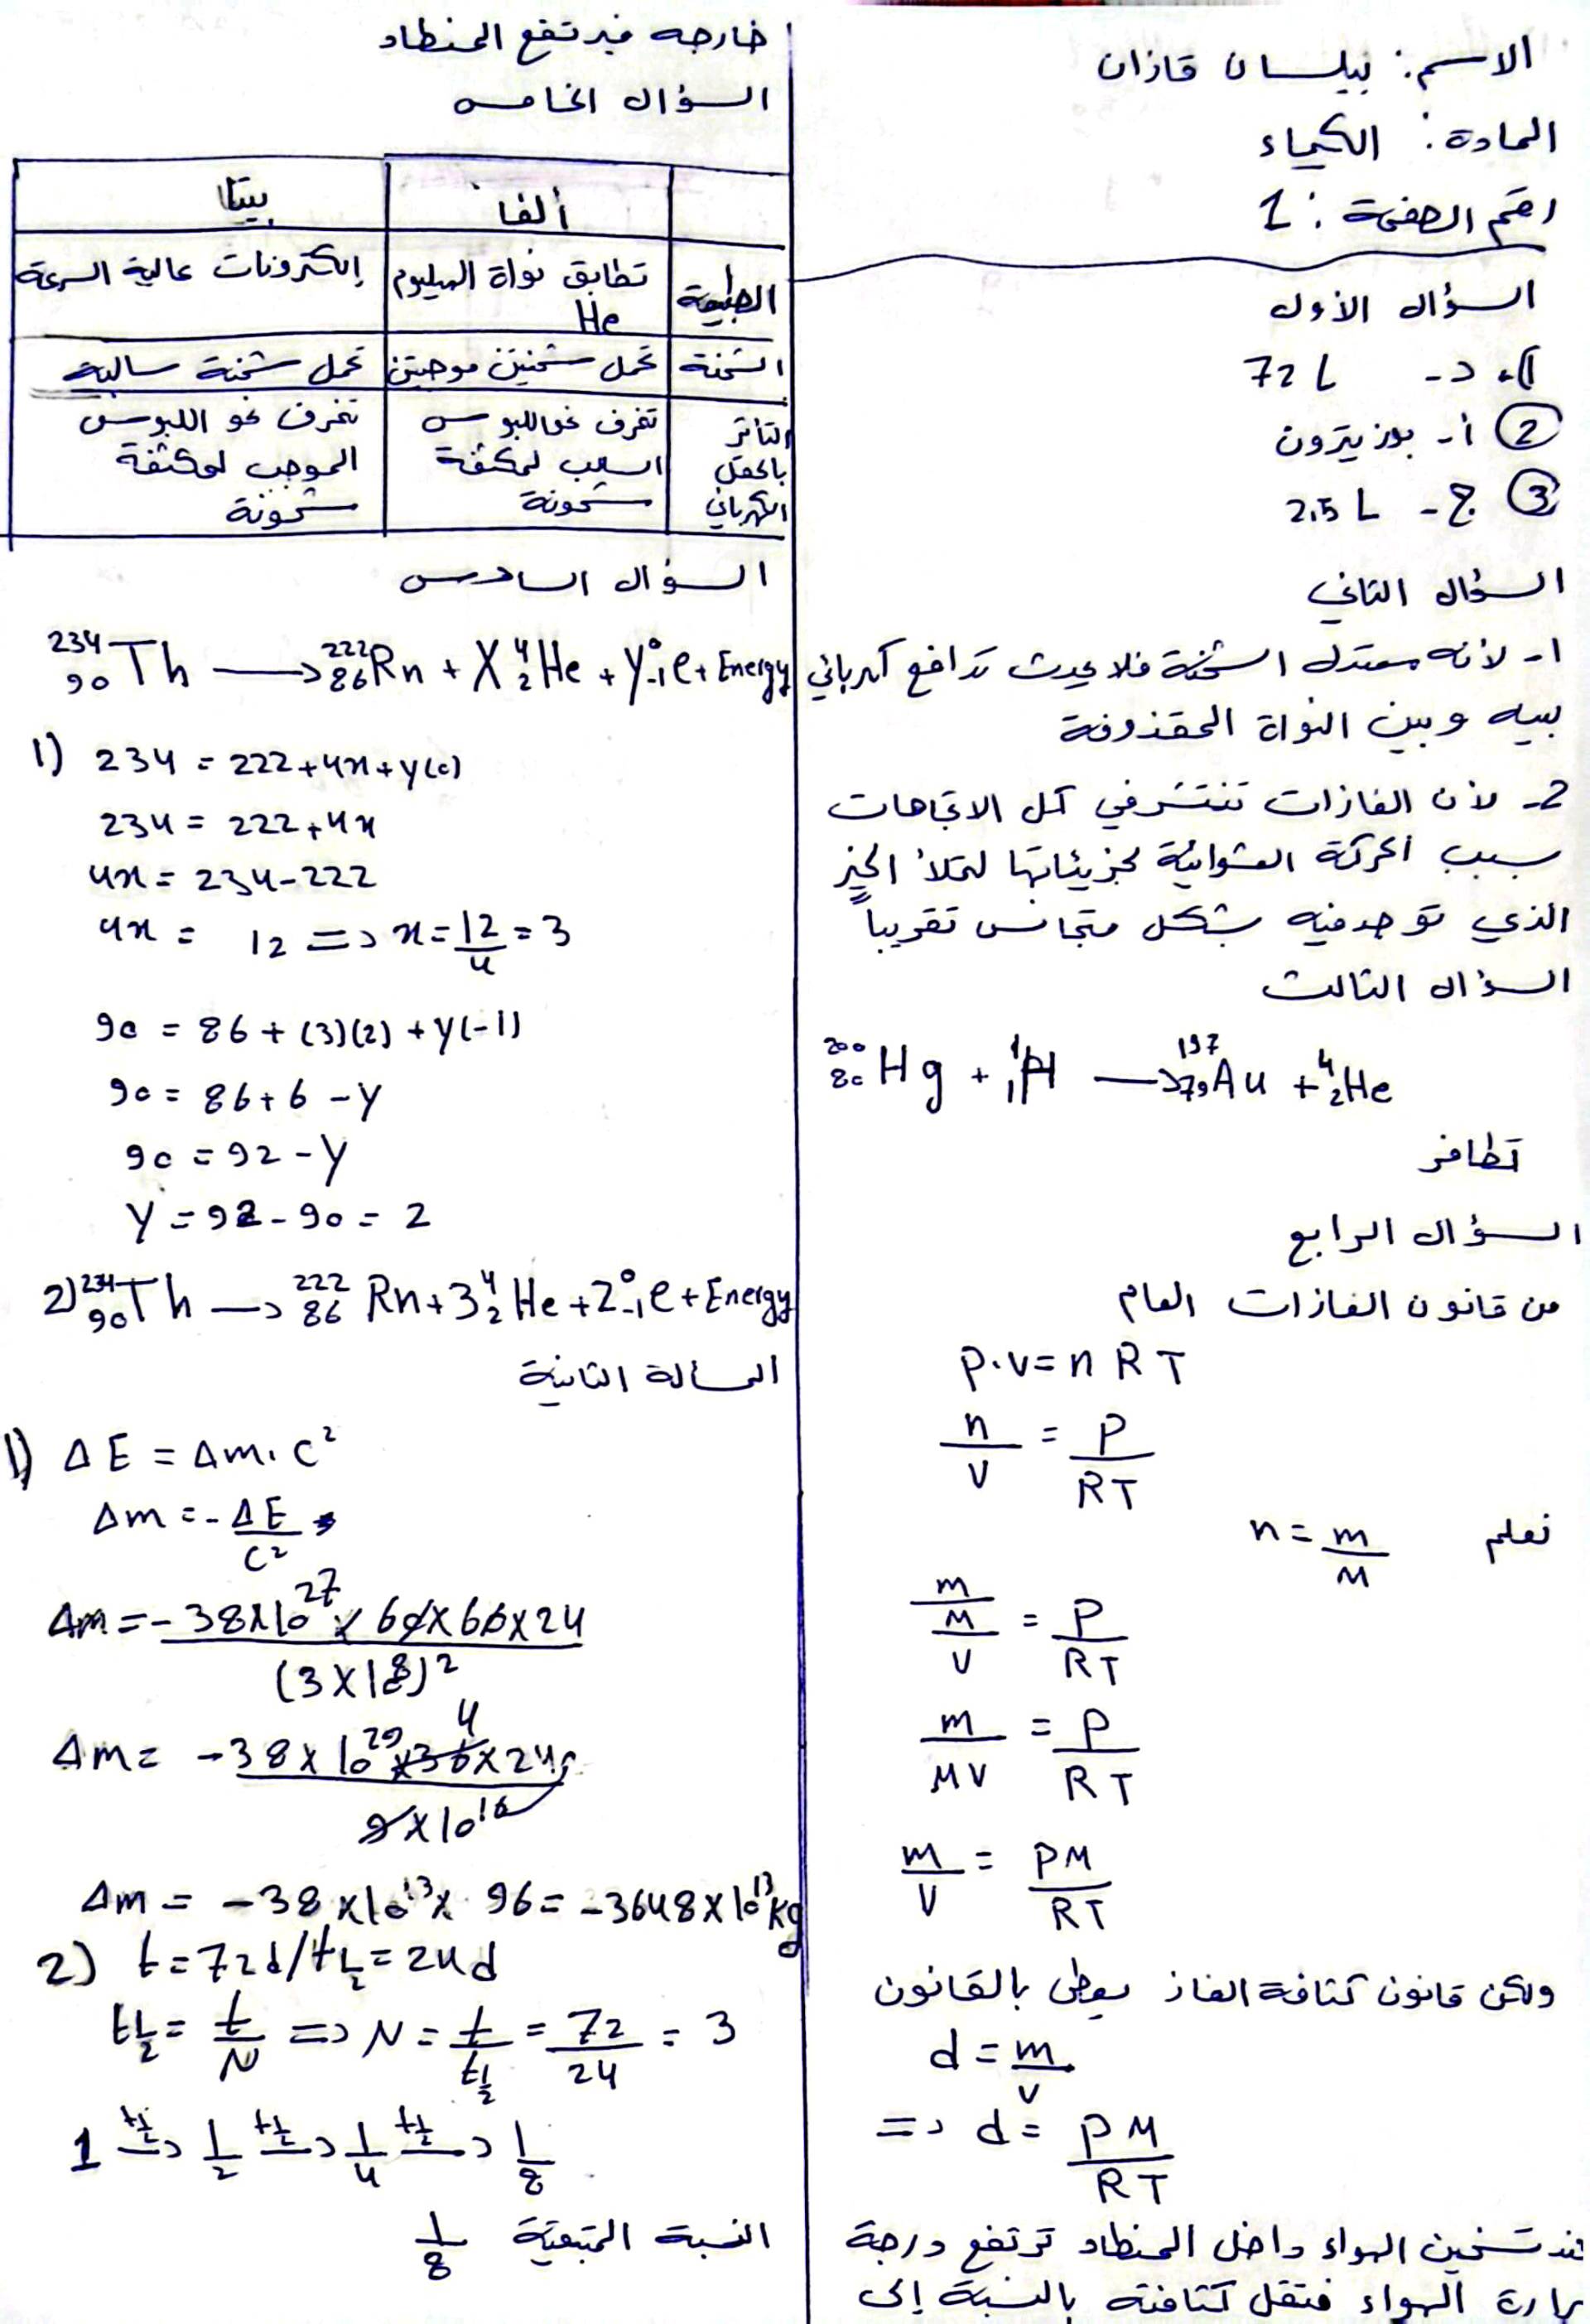 الاسم: نيلسان قازان
المادة: الكيمياء
رقم الصفحة: 1
السؤال الأول
1. د- 72 L
2 أ- بوزيترون
3 ج- 2.5 L
السؤال الثاني
1- لأنه معتدل الشحنة فلا يحدث تدافع كهربائي
بينه وبين النواة المقذوفة
2- لأن الغازات تنتشر في كل الاتجاهات
بسبب الحركة العشوائية لجزيئاتها لتملأ الحيز
الذي توجد فيه بشكل متجانس تقريباً
السؤال الثالث
²⁰⁰₈₀Hg + ¹₁H → ¹⁹⁷₇₉Au + ⁴₂He
تطافر
السؤال الرابع
من قانون الغازات العام
P.V = n R T
n/V = P/RT
نعلم n = m/M
(m/M)/V = P/RT
m/MV = P/RT
m/V = PM/RT
ولكن قانون كثافة الغاز يعطى بالقانون
d = m/V
=> d = PM/RT
عند تسخين الهواء داخل المنطاد ترتفع درجة
حرارة الهواء فتقل كثافته بالنسبة إلى
خارجه فيرتفع المنطاد
السؤال الخامس
ألفا بيتا
الطبيعة تطابق نواة الهيليوم He إلكترونات عالية السرعة
الشحنة تحمل شحنتين موجبتين تحمل شحنة سالبة
التأثر بالحقل الكهربائي تنحرف نحو اللبوس السالب لمكثفة مشحونة تنحرف نحو اللبوس الموجب لمكثفة مشحونة
السؤال السادس
²³⁴₉₀Th → ²²²₈₆Rn + X⁴₂He + Y⁰₋₁e + Energy
1) 234 = 222 + 4x + y(0)
234 = 222 + 4x
4x = 234 - 222
4x = 12 => x = 12/4 = 3
90 = 86 + (3)(2) + y(-1)
90 = 86 + 6 - y
90 = 92 - y
y = 92 - 90 = 2
2) ²³⁴₉₀Th → ²²²₈₆Rn + 3⁴₂He + 2⁰₋₁e + Energy
المسألة الثانية
1) ΔE = Δm . C²
Δm = - ΔE/C²
Δm = - 38×10²⁷ × 60×60×24 / (3×10⁸)²
Δm = -38×10²⁹×36×24 / 9×10¹⁶ 4
Δm = -38×10¹³× 96 = -3648×10¹³ kg
2) t = 72d / t½ = 24d
t½ = t/N => N = t/t½ = 72/24 = 3
1 →t½ 1/2 →t½ 1/4 →t½ 1/8
النسبة المتبقية 1/8